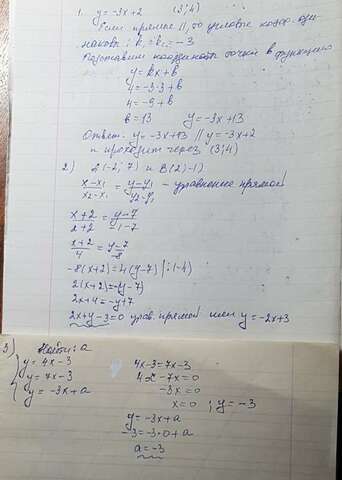 1. y=-3x+2 (3;4)
Если прямые ||, то угловые коэф. оди-
наковы: k₁=k₂=-3
Подставим координаты точки в функцию
y=kx+b
4=-3·3+b
4=-9+b
b=13 y=-3x+13
Ответ: y=-3x+13 || y=-3x+2
и проходит через (3;4)
2) A(-2; 7) и B(2;-1)
x-x₁/x₂-x₁ = y-y₁/y₂-y₁ - уравнение прямой
x+2/2+2 = y-7/-1-7
x+2/4 = y-7/-8
-8(x+2)=4(y-7) |:(-4)
2(x+2)=-(y-7)
2x+4=-y+7
2x+y-3=0 урав. прямой или y=-2x+3
3) Найти: a
y=4x-3 4x-3=7x-3
y=7x-3 4x-7x=0
y=-3x+a -3x=0
x=0 ; y=-3
y=-3x+a
-3=-3·0+a
a=-3